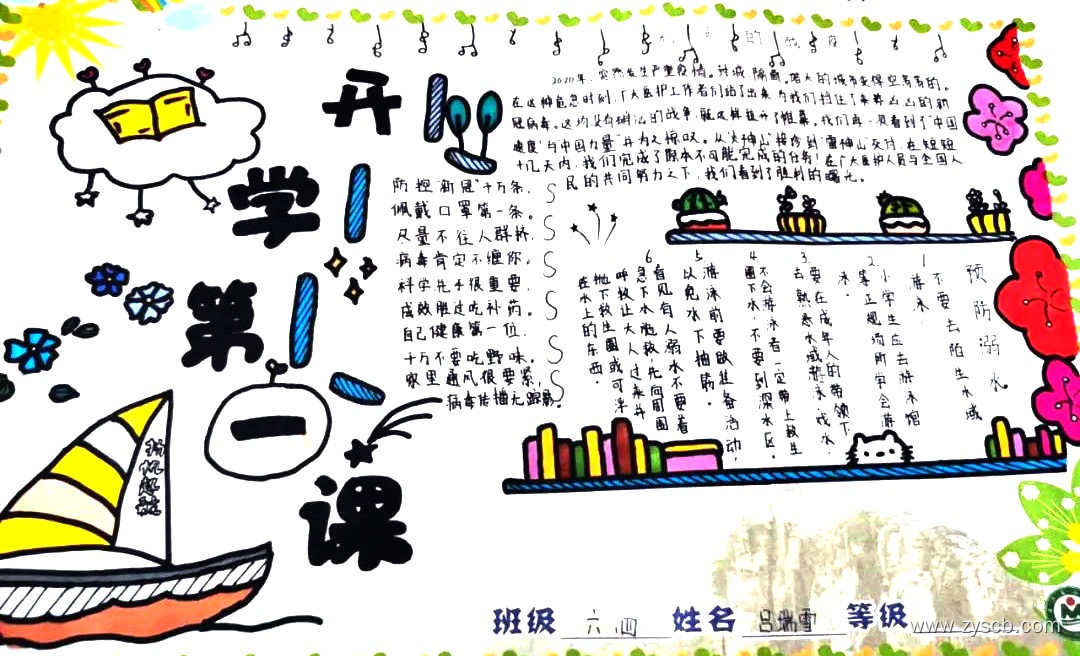 开
学
第
一
课
扬帆起航
2020年,突然发生严重疫情。封城,隔离,偌大的城市变得空荡荡的。
在这种危急时刻,广大医护工作者们站了出来,为我们挡住了来势汹汹的新
冠病毒。这场没有硝烟的战争,就这样拉开了帷幕。我们再一次看到了“中国
速度”与中国力量”并为之惊叹。从“火神山”接诊到“雷神山”交付,在短短
十几天内,我们完成了原本不可能完成的任务!在广大医护人员与全国人
民的共同努力之下,我们看到了胜利的曙光。
防控“新冠”千万条,
佩戴口罩第一条。
尽量不往人群挤,
病毒肯定不缠你。
科学洗手很重要,
成效胜过吃补药。
自己健康第一位,
千万不要吃野味。
家里通风很要紧,
病毒传播无踪影。
预防溺水
1
不要去陌生水域
游泳.
2.
小学生应去游泳馆
等正规场所学会游
泳.
3.
要在成年人的带领下
去熟悉水域游泳戏水.
4
不会游泳者一定带上救生
圈下水,不要到深水区.
5
游泳前要做准备活动,
以免水下抽筋.
6
有下见有人溺水不要着
急救水施救,先向周围
呼救让大人救,或可采并
抛下救生圈或可漂浮
在水上的东西.
班级 六四 姓名 吕瑞雪 等级
www.zyscb.com